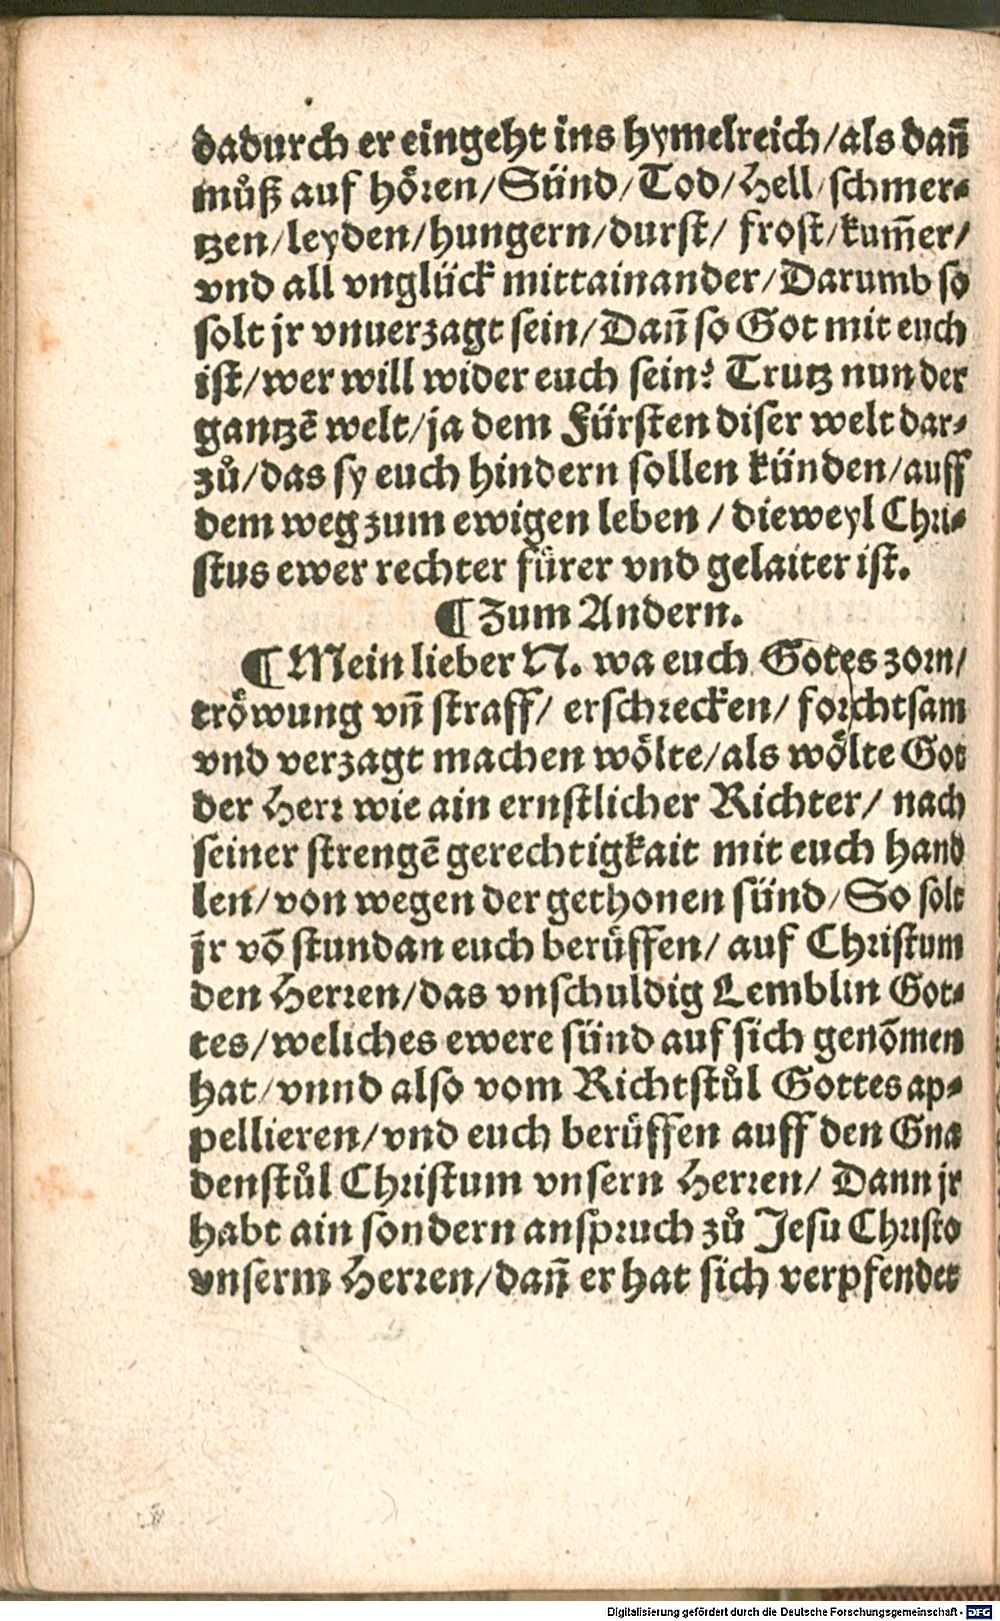 dadurch er eingeht ins hymelreich/als dañ
můß auf hören/Sünd/Tod/Hell/schmer-
tzen/leyden/hungern/durst/ frost/kum̃er/
vnd all vnglück mittainander/Darumb so
solt jr vnuerzagt sein/Dañ so Got mit euch
ist/wer will wider euch sein? Trutz nun der
gantzẽ welt/ja dem Fürsten diser welt dar-
zů/das sy euch hindern sollen künden/auff
dem weg zum ewigen leben / dieweyl Chri-
stus ewer rechter fürer vnd gelaiter ist.
¶ Zum Andern.
¶ Mein lieber N. wa euch Gotes zorn/
tröwung vñ straff/ erschrecken/ forchtsam
vnd verzagt machen wölte/als wölte Got
der Herr wie ain ernstlicher Richter/ nach
seiner strengẽ gerechtigkait mit euch hand
len/von wegen der gethonen sünd/So solt
jr võ stundan euch berüffen/ auf Christum
den Herren/das vnschuldig Lemblin Got-
tes/weliches ewere sünd auf sich genõmen
hat/vnnd also vom Richtstůl Gottes ap-
pellieren/vnd euch berüffen auff den Gna
denstůl Christum vnsern Herren/ Dann jr
habt ain sondern anspruch zů Jesu Christo
vnserm Herren/dañ er hat sich verpfendet
Digitalisierung gefördert durch die Deutsche Forschungsgemeinschaft - DFG